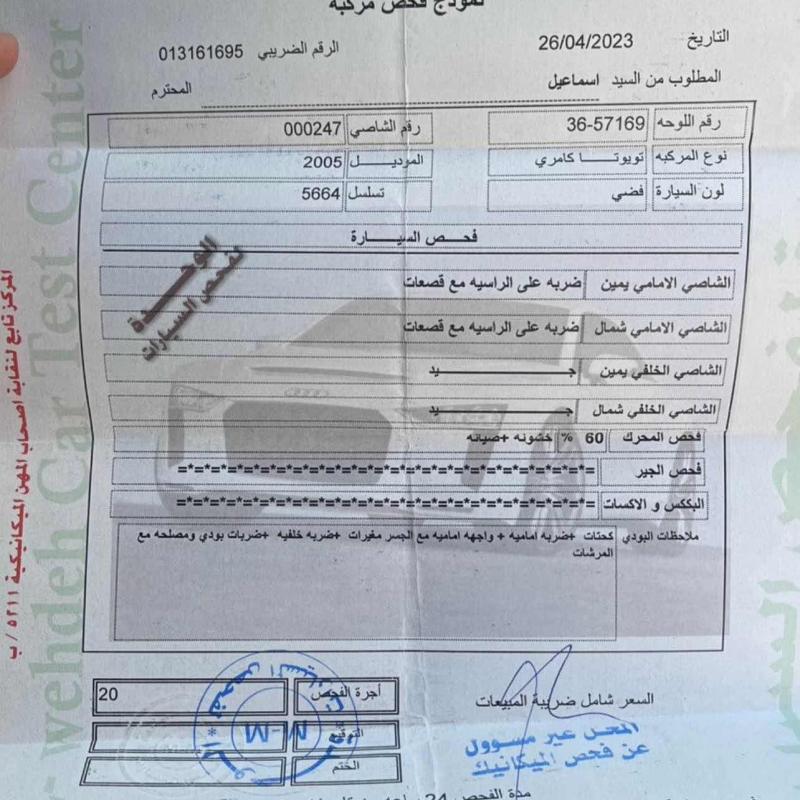 نموذج فحص مركبة
التاريخ 26/04/2023
الرقم الضريبي 013161695
المطلوب من السيد اسماعيل المحترم
رقم اللوحه 36-57169 رقم الشاصي 000247
نوع المركبه تويوتا كامري الموديل 2005
لون السيارة فضي تسلسل 5664
فحص السيارة
الوحدة
لفحص السيارات
الشاصي الامامي يمين ضربه على الراسيه مع قصعات
الشاصي الامامي شمال ضربه على الراسيه مع قصعات
الشاصي الخلفي يمين جيد
الشاصي الخلفي شمال جيد
فحص المحرك 60 % خشونه +صيانه
فحص الجير =*=*=*=*=*=*=*=*=*=*=*=*=*=*=*=*=*=*=*=*=*=*=*=*=
البكس و الاكسات =*=*=*=*=*=*=*=*=*=*=*=*=*=*=*=*=*=*=*=*=*=*=*=*=
ملاحظات البودي كحتات +ضربه اماميه + واجهه اماميه مع الجسر مغيرات +ضربه خلفيه +ضربات بودي ومصلحه مع
المرشات
السعر شامل ضريبة المبيعات
أجرة الفحص 20
التوقيع
الختم
M-M
المحل غير مسوول
عن فحص الميكانيك
مدة الفحص 24 ساعه
المركز تابع لنقابة اصحاب المهن الميكانيكية ٥٢١١ / ب
wehdeh Car Test Center